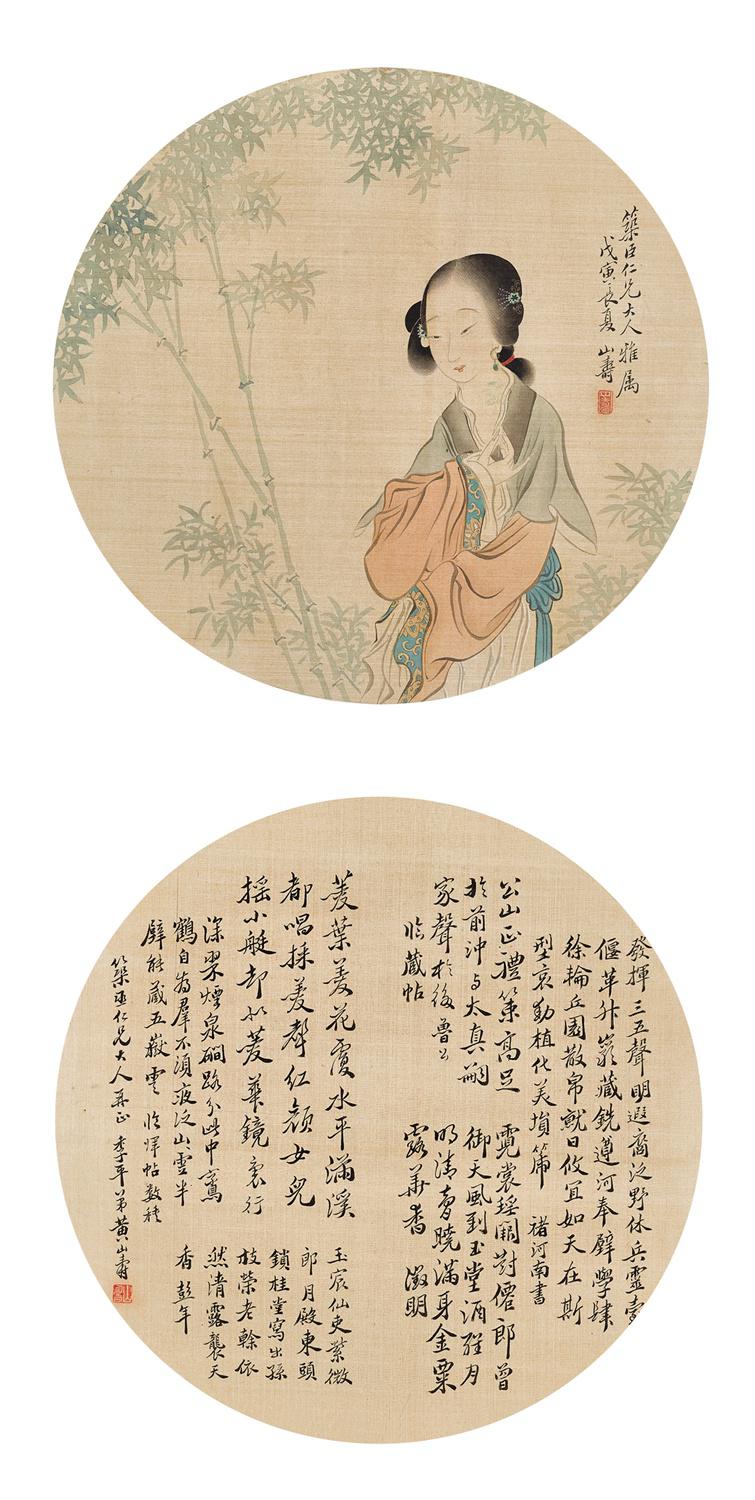 築臣仁兄大人 雅属
戊寅長夏 山壽
發揮三五聲明遐裔泛野休兵靈臺
偃革升巖藏銑遵河奉璧學肆
徐輪丘園散帛就日攸宜如天在斯
型哀動植化美塤篪 褚河南書
公山正禮策高足
於前沖与太真翽
家聲於後 魯公
臨藏帖
霓裳瑤闕對僊郎曾
御天風到玉堂酒醒月
明清夢曉滿身金粟
露華香 澂明
菱葉菱花覆水平滿溪
都唱採菱聲紅顏女兒
搖小艇却如菱華鏡裏行
深翠煙泉磵路分此中鸞
鶴自為羣不須疲泛山雲半
壁能藏五嶽雲 臨惲帖数種
玉宸仙吏紫微
郎月殿東頭
鎖桂堂寫出孫
枝榮老榦依
然清露襲天
香 彭年
築臣仁兄大人再正 季平弟黃山壽